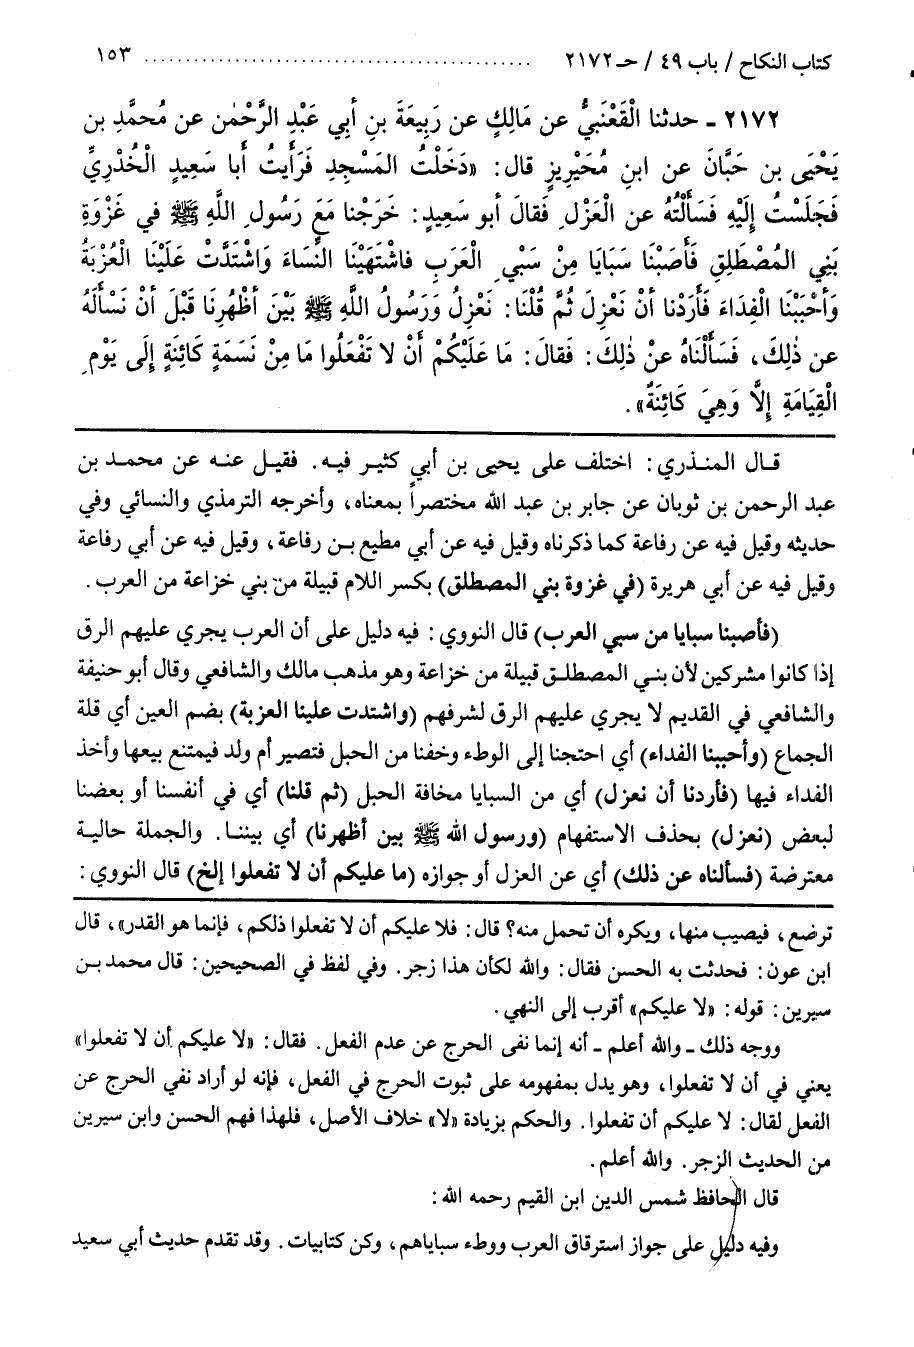 كتاب النكاح / باب ٤٩ / حـ ٢١٧٢ ........................................ ١٥٣
٢١٧٢ ـ حدثنا الْقَعْنَبيُّ عن مَالِكٍ عن رَبِيعَةَ بنِ أبي عَبْدِ الرَّحْمٰن عن مُحمَّدِ بن
يَحْيَى بن حَبَّانَ عن ابنِ مُحَيْرِيزٍ قال: «دَخَلْتُ المَسْجِدِ فَرَأيتُ أبا سَعِيدٍ الْخُدْرِيِّ
فَجَلَسْتُ إِلَيْهِ فَسَألْتُهُ عن الْعَزْلِ فقالَ أبو سَعِيد: خَرَجْنا مَعَ رَسُولِ اللَّهِ ﷺ في غَزْوَةِ
بَنِي المُصْطَلقِ فَأصَبْنَا سَبَايَا مِنْ سَبْيِ الْعَرَبِ فاشْتَهَيْنا النِّسَاءَ وَاشْتَدَّتْ عَلَيْنا الْعُزْبَةُ
وَأحْبَبْنَا الْفِدَاءَ فَأرَدْنا أنْ نَعْزِلَ ثُمَّ قُلْنَا: نَعْزِلُ وَرَسُولُ اللَّهِ ﷺ بَيْنَ أظْهُرِنَا قَبْلَ أنْ نَسْألَهُ
عن ذٰلِكَ، فَسَألْنَاهُ عنْ ذٰلِكَ: فَقالَ: مَا عَلَيْكُمْ أنْ لا تَفْعَلُوا مَا مِنْ نَسَمَةٍ كَائِنَةٍ إِلَى يَوْمِ
الْقِيَامَةِ إِلَّا وَهِيَ كَائِنَةٌ».
قال المنذري: اختلف على يحيى بن أبي كثير فيه. فقيل عنه عن محمد بن
عبد الرحمن بن ثوبان عن جابر بن عبد الله مختصراً بمعناه، وأخرجه الترمذي والنسائي وفي
حديثه وقيل فيه عن رفاعة كما ذكرناه وقيل فيه عن أبي مطيع بن رفاعة، وقيل فيه عن أبي رفاعة
وقيل فيه عن أبي هريرة (في غزوة بني المصطلق) بكسر اللام قبيلة من بني خزاعة من العرب.
(فأصبنا سبايا من سبي العرب) قال النووي: فيه دليل على أن العرب يجري عليهم الرق
إذا كانوا مشركين لأن بني المصطلق قبيلة من خزاعة وهو مذهب مالك والشافعي وقال أبو حنيفة
والشافعي في القديم لا يجري عليهم الرق لشرفهم (واشتدت علينا العزبة) بضم العين أي قلة
الجماع (وأحببنا الفداء) أي احتجنا إلى الوطء وخفنا من الحبل فتصير أم ولد فيمتنع بيعها وأخذ
الفداء فيها (فأردنا أن نعزل) أي من السبايا مخافة الحبل (ثم قلنا) أي في أنفسنا أو بعضنا
لبعض (نعزل) بحذف الاستفهام (ورسول الله ﷺ بين أظهرنا) أي بيننا. والجملة حالية
معترضة (فسألناه عن ذلك) أي عن العزل أو جوازه (ما عليكم أن لا تفعلوا إلخ) قال النووي:
ترضع، فيصيب منها، ويكره أن تحمل منه؟ قال: فلا عليكم أن لا تفعلوا ذلكم، فإنما هو القدر»، قال
ابن عون: فحدثت به الحسن فقال: والله لكأن هذا زجر. وفي لفظ في الصحيحين: قال محمد بن
سيرين: قوله: «لا عليكم» أقرب إلى النهي.
ووجه ذلك ـ والله أعلم ـ أنه إنما نفى الحرج عن عدم الفعل. فقال: «لا عليكم أن لا تفعلوا»
يعني في أن لا تفعلوا، وهو يدل بمفهومه على ثبوت الحرج في الفعل، فإنه لو أراد نفي الحرج عن
الفعل لقال: لا عليكم أن تفعلوا. والحكم بزيادة «لا» خلاف الأصل، فلهذا فهم الحسن وابن سيرين
من الحديث الزجر. والله أعلم.
قال الحافظ شمس الدين ابن القيم رحمه الله:
وفيه دليل على جواز استرقاق العرب ووطء سباياهم، وكن كتابيات. وقد تقدم حديث أبي سعيد